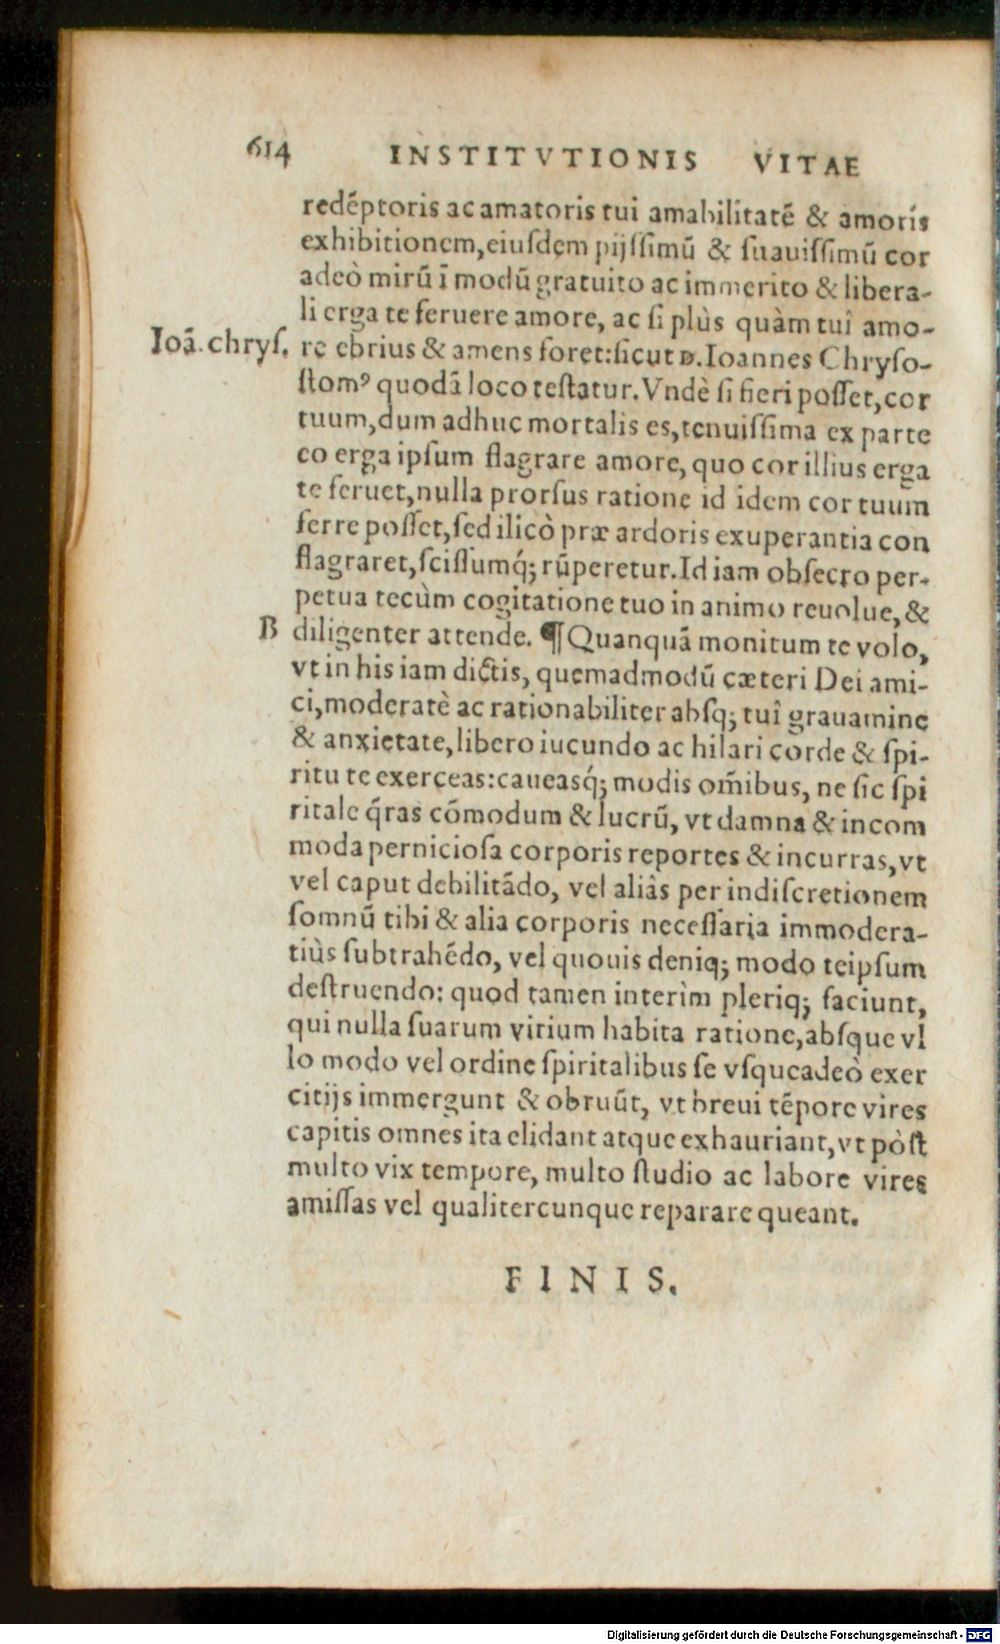 614 INSTITVTIONIS VITAE
redēptoris ac amatoris tui amabilitatē & amoris
exhibitionem,eiuſdem pijſſimū & ſuauiſſimū cor
adeò mirū ī modū gratuito ac immerito & libera-
li erga te feruere amore, ac ſi plùs quàm tuî amo-
Ioā. chryſ. re ebrius & amens foret:ſicut D.Ioannes Chryſo-
ſtomꝰ quodā loco teſtatur.Vndè ſi fieri poſſet,cor
tuum,dum adhuc mortalis es,tenuiſſima ex parte
eo erga ipſum flagrare amore, quo cor illius erga
te feruet,nulla prorſus ratione id idem cor tuum
ferre poſſet,ſed ilicò præ ardoris exuperantia con
flagraret,ſciſſumq́; rūperetur.Id iam obſecro per-
petua tecùm cogitatione tuo in animo reuolue, &
B diligenter attende. ¶ Quanquā monitum te volo,
vt in his iam dictis, quemadmodū cæteri Dei ami-
ci,moderatè ac rationabiliter abſq; tuî grauamine
& anxietate,libero iucundo ac hilari corde & ſpi-
ritu te exerceas:caueasq́; modis om̄ibus, ne ſic ſpi
ritale q̄ras cōmodum & lucrū, vt damna & incom
moda pernicioſa corporis reportes & incurras,vt
vel caput debilitādo, vel aliàs per indiſcretionem
ſomnū tibi & alia corporis neceſſaria immodera-
tiùs ſubtrahēdo, vel quouis deniq; modo teipſum
deſtruendo: quod tamen interìm pleriq; faciunt,
qui nulla ſuarum virium habita ratione,abſque vl
lo modo vel ordine ſpiritalibus ſe vſqueadeò exer
citijs immergunt & obruūt, vt breui tēpore vires
capitis omnes ita elidant atque exhauriant,vt pòſt
multo vix tempore, multo ſtudio ac labore vires
amiſſas vel qualitercunque reparare queant.
FINIS.
Digitalisierung gefördert durch die Deutsche Forschungsgemeinschaft - DFG